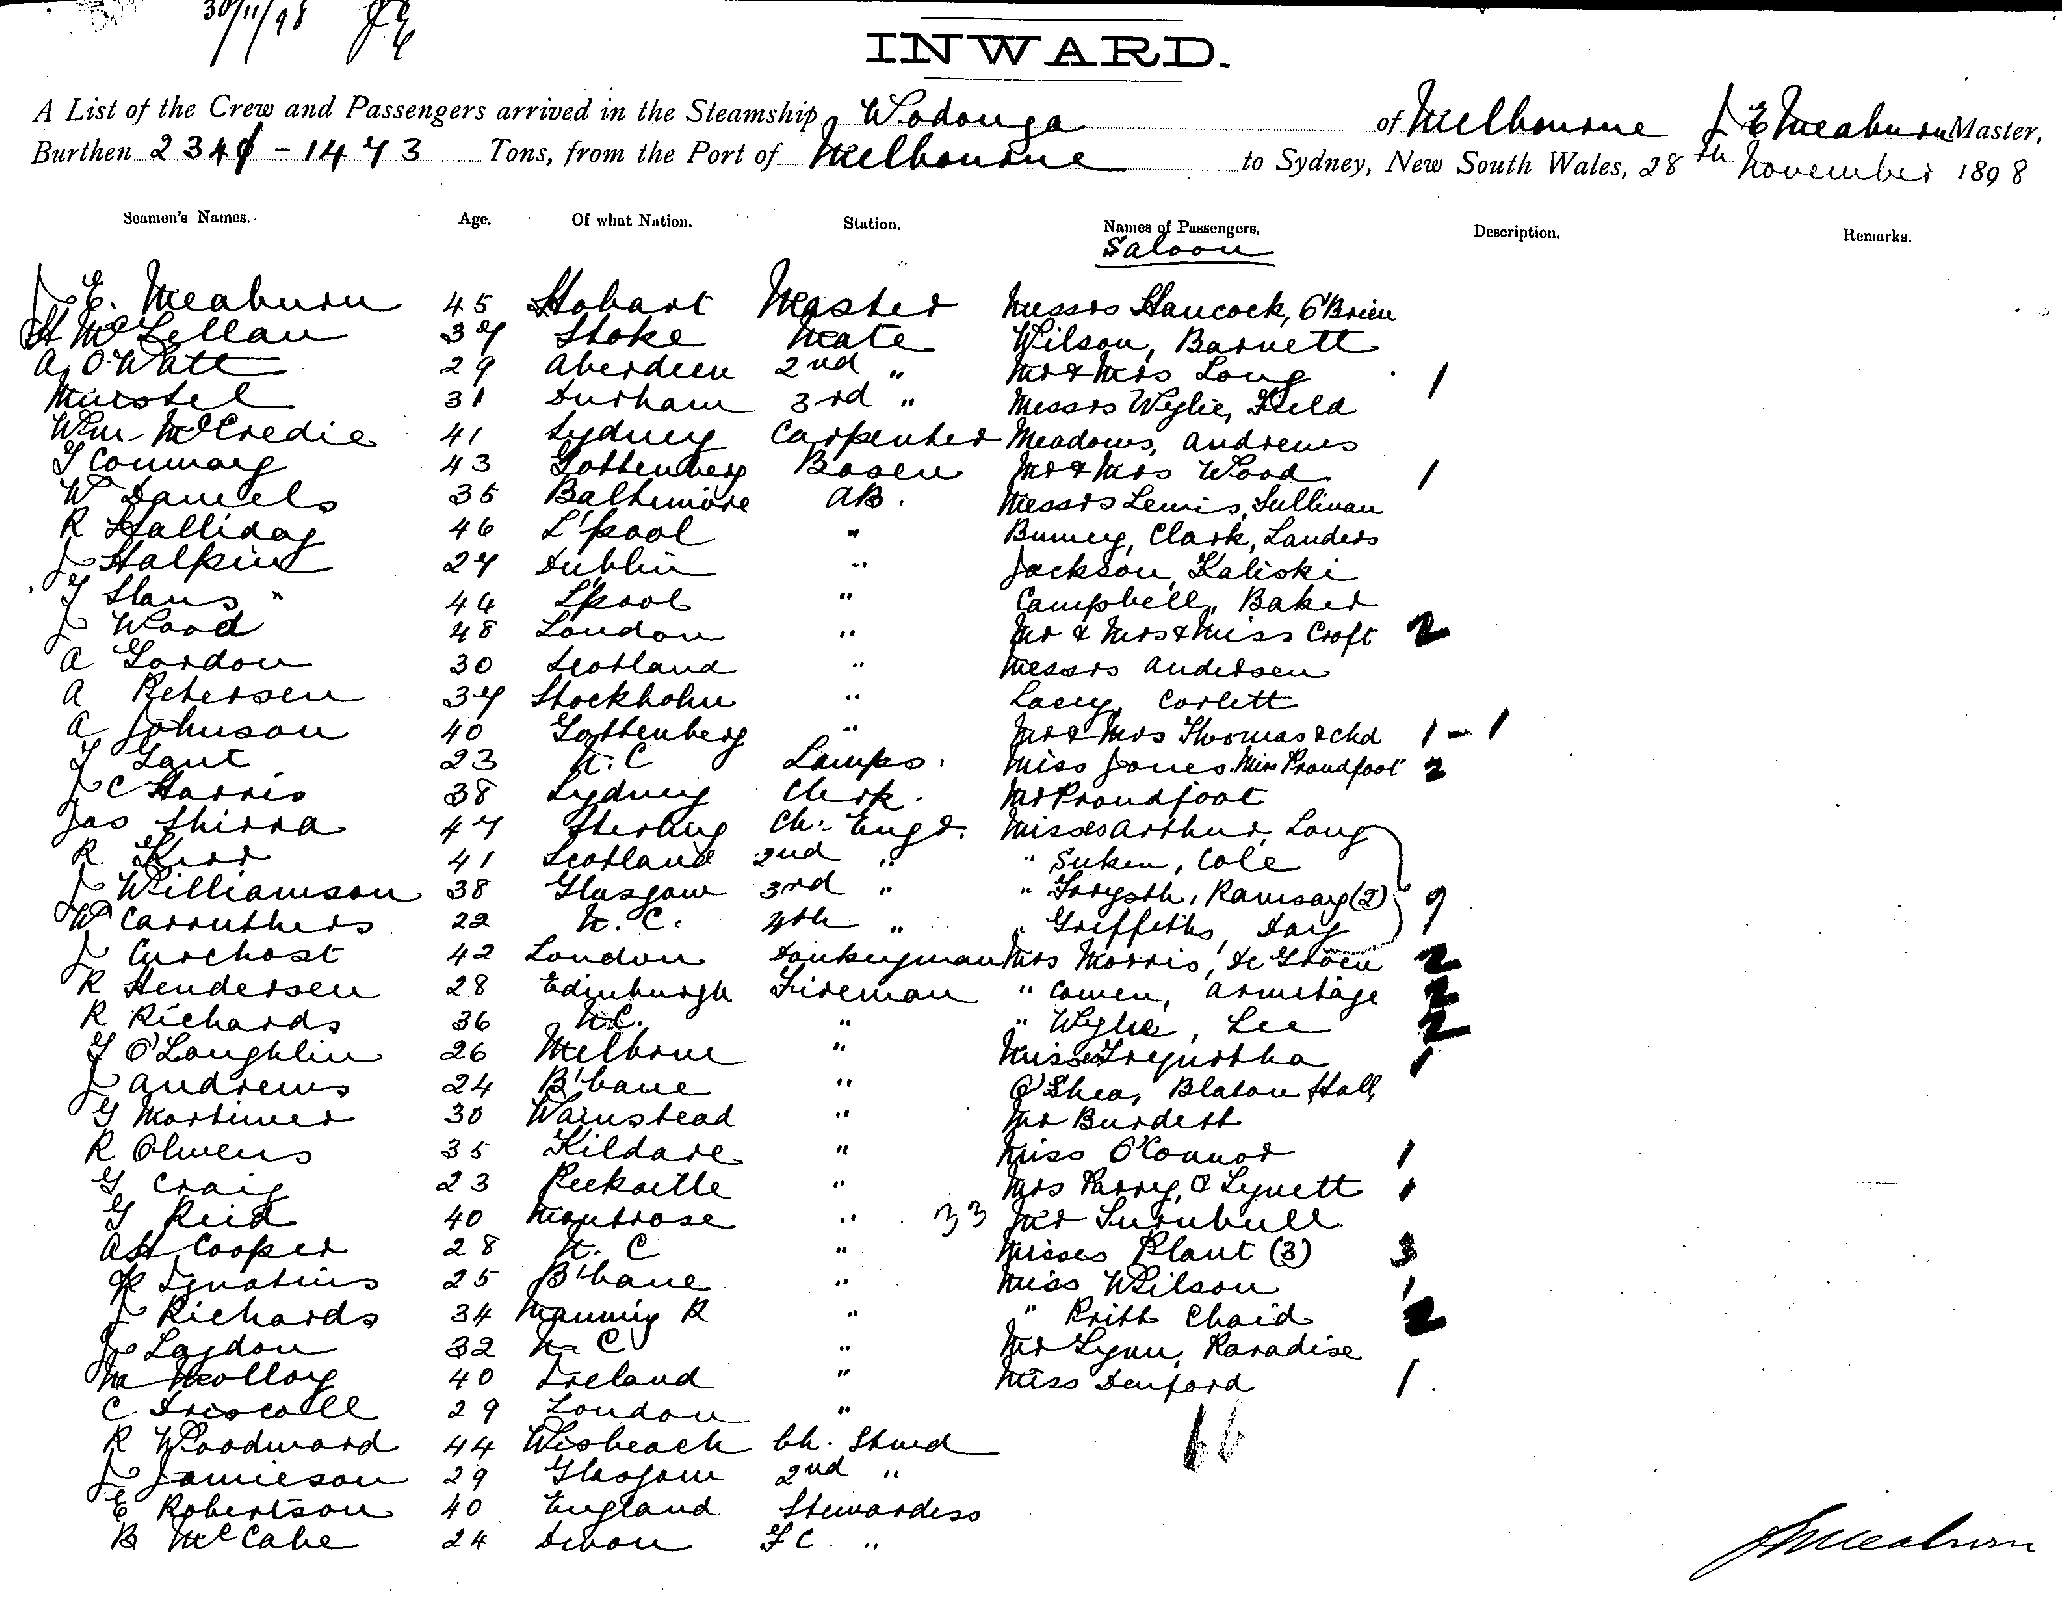 30/11/98
INWARD.
A List of the Crew and Passengers arrived in the Steamship Wodonga of Melbourne J E Meaburn Master,
Burthen 2341 - 1473 Tons, from the Port of Melbourne to Sydney, New South Wales, 28th November 1898
Seamen's Names. Age. Of what Nation. Station. Names of Passengers. Description. Remarks.
Saloon
J E. Meaburn 45 Hobart Master Messrs Hancock, O'Brien
H McLellan 37 Stoke Mate Wilson, Barnett
A, O. Watt 29 Aberdeen 2nd " Mr & Mrs Long 1
31 Durham 3rd " Messrs Wylie, Field
Wm McCredie 41 Sydney Carpenter Meadows, Andrews
43 Gottenberg Bosen Mr & Mrs Wood 1
W Daniels 35 Balthimore AB. Messrs Lewis, Sullivan
R Halliday 46 L'pool " Burney, Clark, Landers
J Halpin 27 Dublin " Jackson, Kaliski
44 L'pool " Campbell, Baker
J Wood 48 London " Mr & Mrs & Miss Croft 2
A Gordon 30 Scotland " Messrs Andersen
A Petersen 37 Stockholm " Lacey, Corlett
A Johnson 40 Gottenberg " Mr & Mrs Thomas & chd 1 - 1
T Gant 23 N. C Lamps. Miss Jones Miss Proudfoot 2
J C Harris 38 Sydney Clerk. Mr Proudfoot
Jas Shirra 47 Sterling Ch. Engr. Misses Arthur, Long
R Kerr 41 Scotland 2nd " " Suken, Cole
J Williamson 38 Glasgow 3rd " " Forysth, Ramsay (2) 9
W Carruthers 22 N. C. 4th " " Griffiths, Day
J 42 London Donkeyman Mrs Morris, De Groen 2
R Hendersen 28 Edinburgh Fireman " Cowen, Armitage 2
R Richards 36 N.C. " " Wylie, Lee 2
T O'Loughlin 26 Melbrne " Misses Tregurtha 1
J Andrews 24 B'bane " O'Shea, Blaton Hall
G Mortimer 30 Wainstead " Mr Burdett
R Olwens 35 Kildare " Miss O'Connor 1
G Craig 23 " Mrs Parry, & Lynett 1
G Reid 40 Montrose " 33 Mr Turnbull
AH Cooper 28 N. C " Misses Plant (3) 3
P Ignatius 25 B'bane " Miss Wilson 1
J Richards 34 Manning R " " Pritt Chaid 2
J Laydon 32 N. C " Mr Lynn, Paradise
M Molloy 40 Ireland " Miss Denford 1.
C Driscoll 29 London "
R Woodward 44 Wisbeach Ch. Stwd 66
J Jamieson 29 Glasgow 2nd "
E Robertson 40 England Stewardess
B McCabe 24 Devon FC "
J E Meaburn